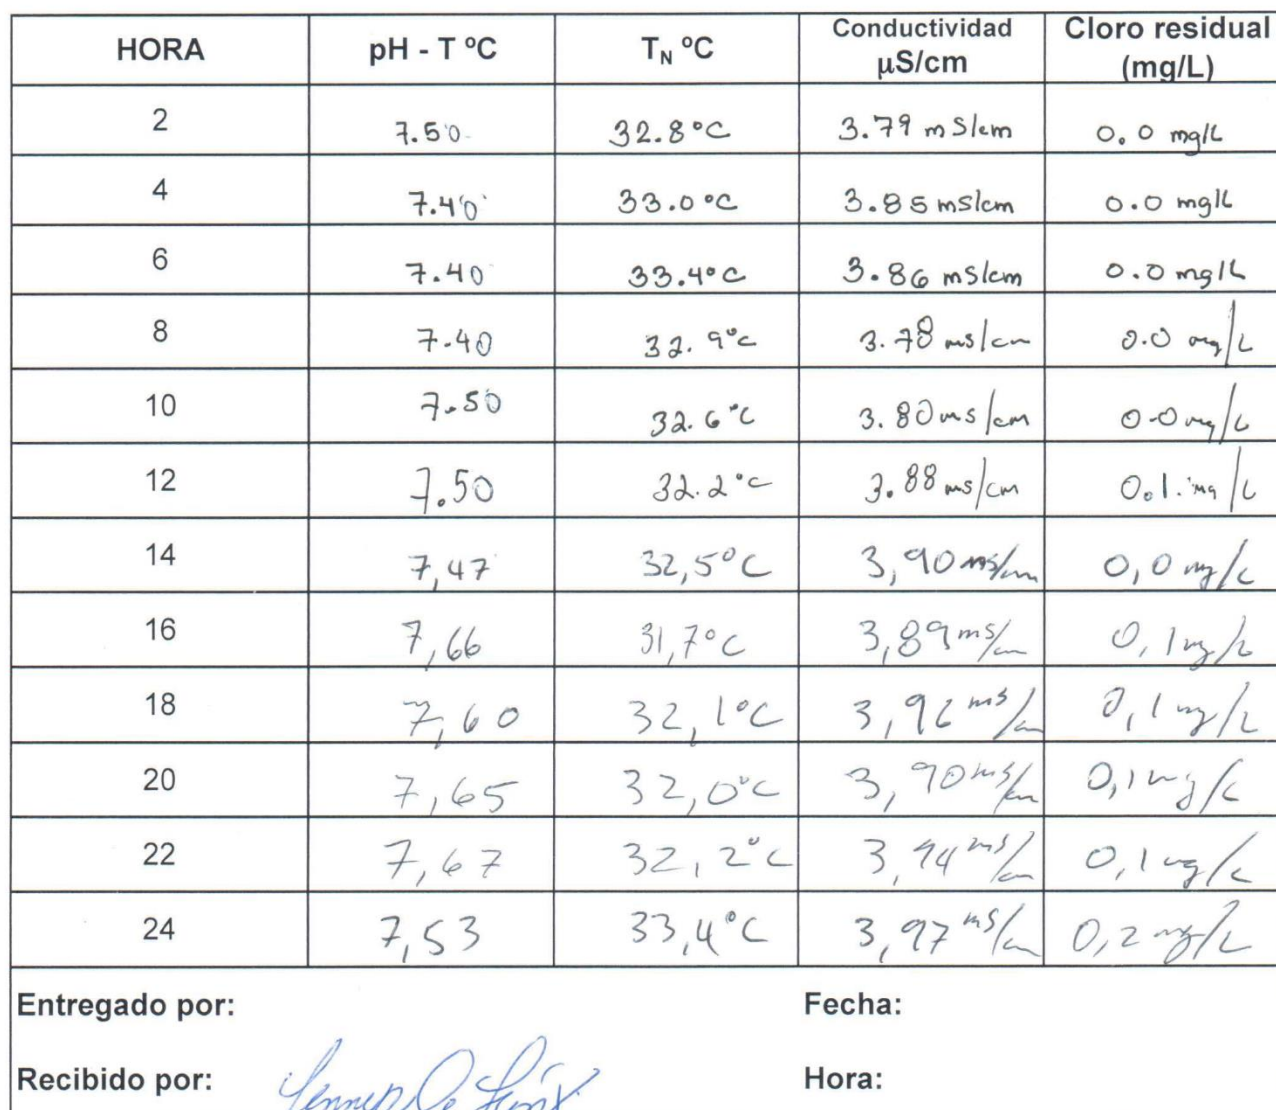 HORA pH - T ºC T_N ºC Conductividad µS/cm Cloro residual (mg/L)
2 7.50 32.8°C 3.79 mS/cm 0.0 mg/L
4 7.40 33.0°C 3.85 mS/cm 0.0 mg/L
6 7.40 33.4°C 3.86 mS/cm 0.0 mg/L
8 7.40 32.9°C 3.78 ms/cm 0.0 mg/L
10 7.50 32.6°C 3.80 ms/cm 0.0 mg/L
12 7.50 32.2°C 3.88 ms/cm 0.1 mg/L
14 7,47 32,5°C 3,90 ms/cm 0,0 mg/L
16 7,66 31,7°C 3,89 ms/cm 0,1 mg/L
18 7,60 32,1°C 3,96 ms/cm 0,1 mg/L
20 7,65 32,0°C 3,90 ms/cm 0,1 mg/L
22 7,67 32,2°C 3,94 ms/cm 0,1 mg/L
24 7,53 33,4°C 3,97 ms/cm 0,2 mg/L
Entregado por: Fecha:
Recibido por: Hora: